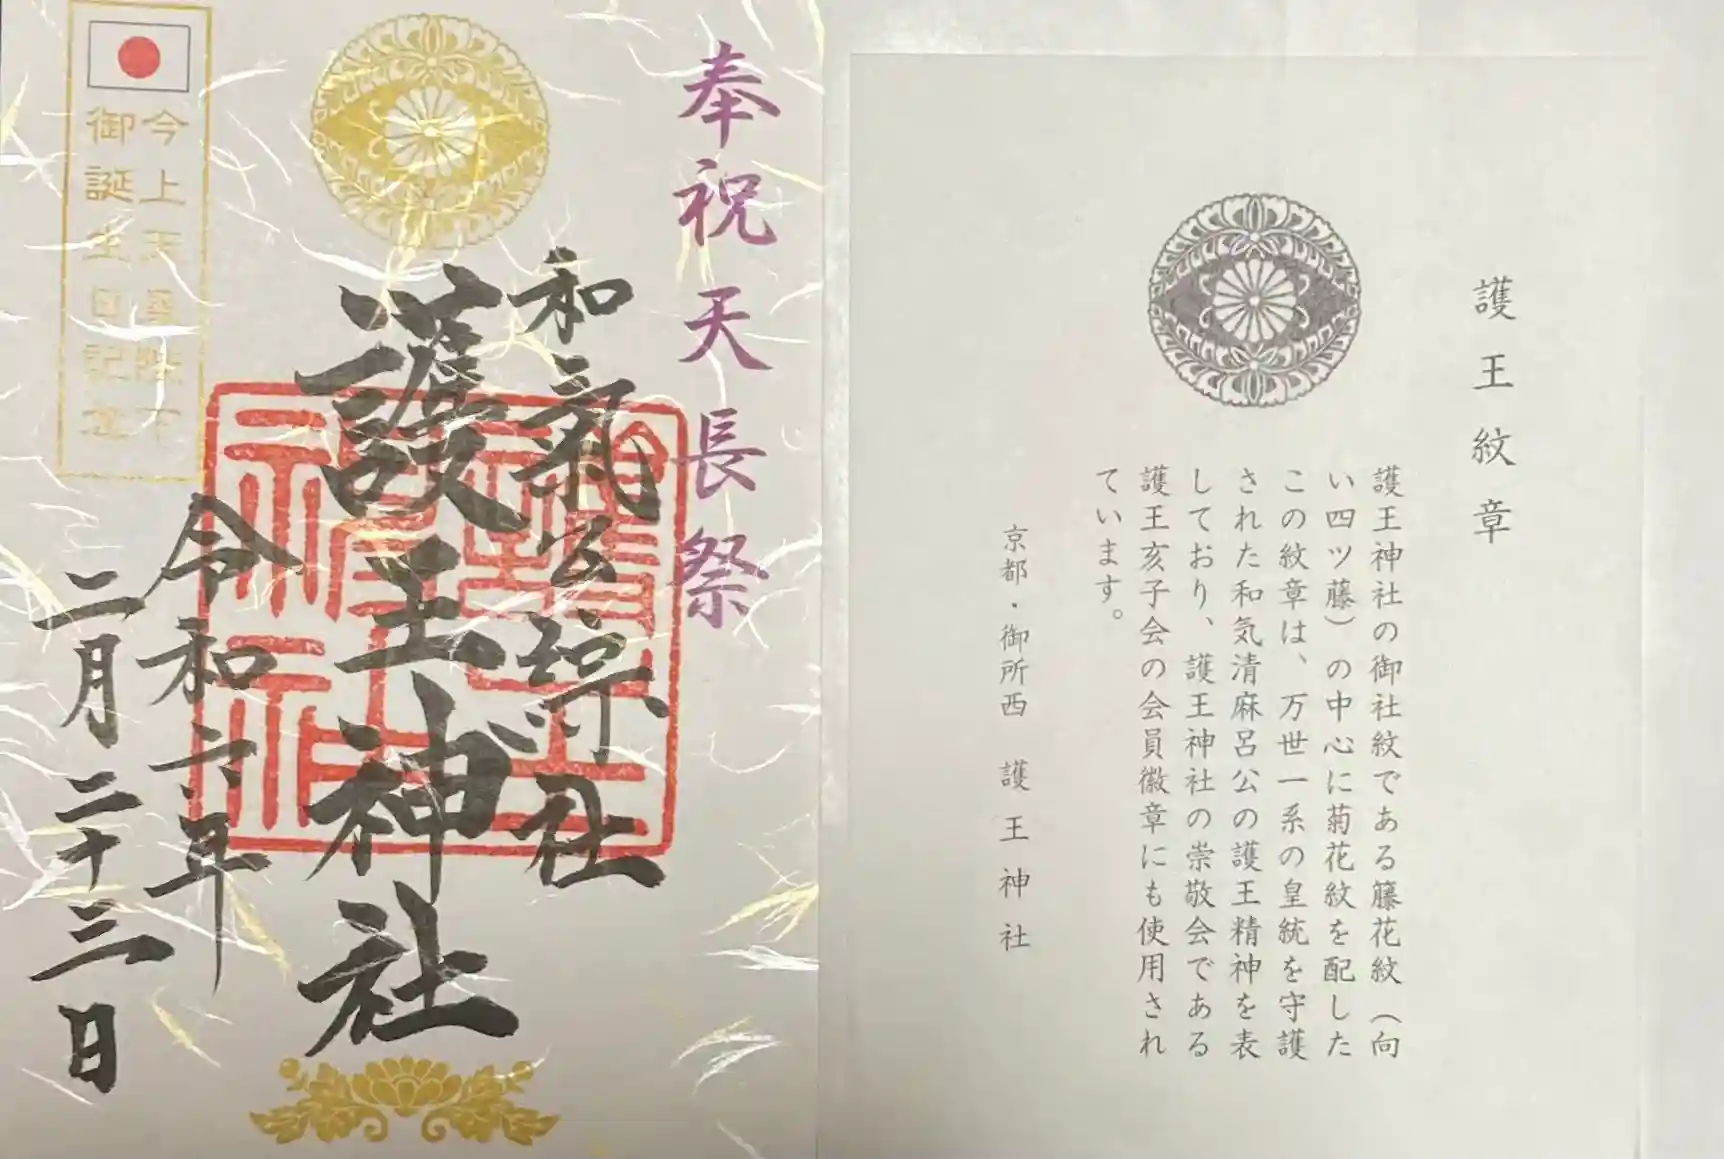 奉祝天長祭
和氣公綜社
護王神社
令和六年
二月二十三日
今上天皇陛下
御誕生日記念
護王神社
護王紋章
護王神社の御社紋である藤花紋（向
い四ツ藤）の中心に菊花紋を配した
この紋章は、万世一系の皇統を守護
された和気清麻呂公の護王精神を表
しており、護王神社の崇敬会である
護王亥子会の会員徽章にも使用され
ています。
京都・御所西　護王神社